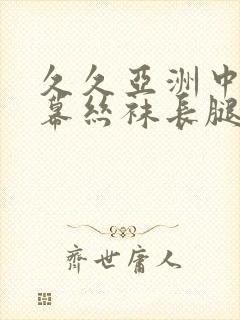 久久亞洲中
幕絲袜長腿
齊世庸人